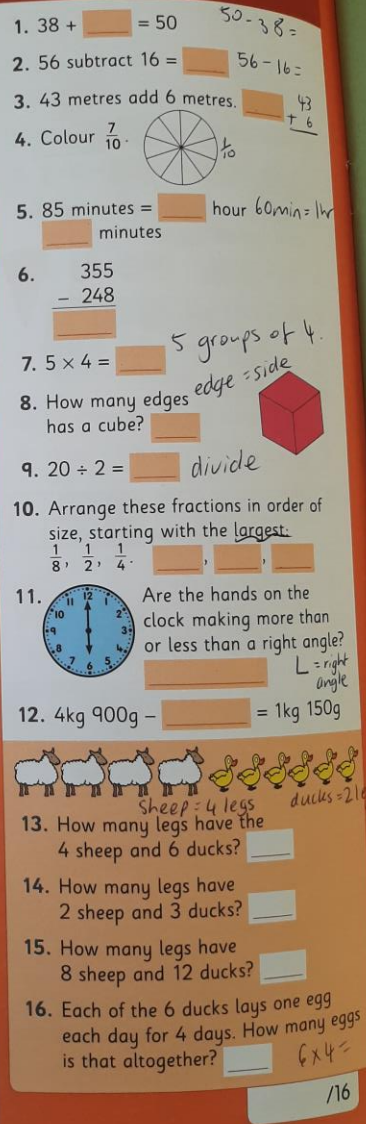 1. 38 + ____ = 50 50 - 38 =
2. 56 subtract 16 = ____ 56 - 16 =
3. 43 metres add 6 metres. ____ 43
+ 6
4. Colour 7/10. 1/10
5. 85 minutes = ____ hour 60min = 1hr
____ minutes
6. 355
− 248
5 groups of 4.
7. 5 × 4 = ____
edge = side
8. How many edges
has a cube? ____
9. 20 ÷ 2 = ____ divide
10. Arrange these fractions in order of
size, starting with the largest:
1/8, 1/2, 1/4. ____, ____, ____
11. 12 1 2 3 4 5 6 7 8 9 10 11
Are the hands on the
clock making more than
or less than a right angle?
L = right
angle
12. 4kg 900g − ____ = 1kg 150g
Sheep = 4 legs ducks = 2
13. How many legs have the
4 sheep and 6 ducks? ____
14. How many legs have
2 sheep and 3 ducks? ____
15. How many legs have
8 sheep and 12 ducks? ____
16. Each of the 6 ducks lays one egg
each day for 4 days. How many eggs
is that altogether? ____ 6 x 4 =
/16